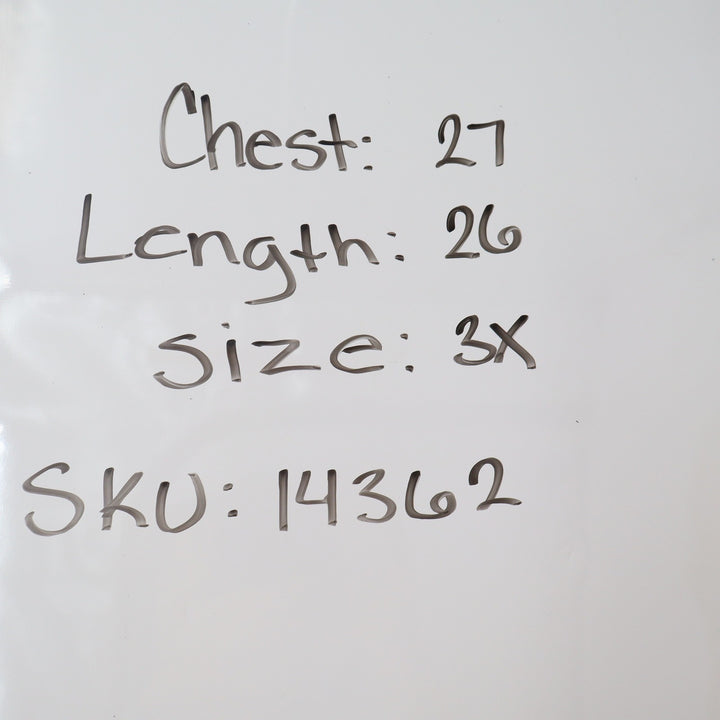 Chest: 27
Length: 26
size: 3X
SKU: 14362